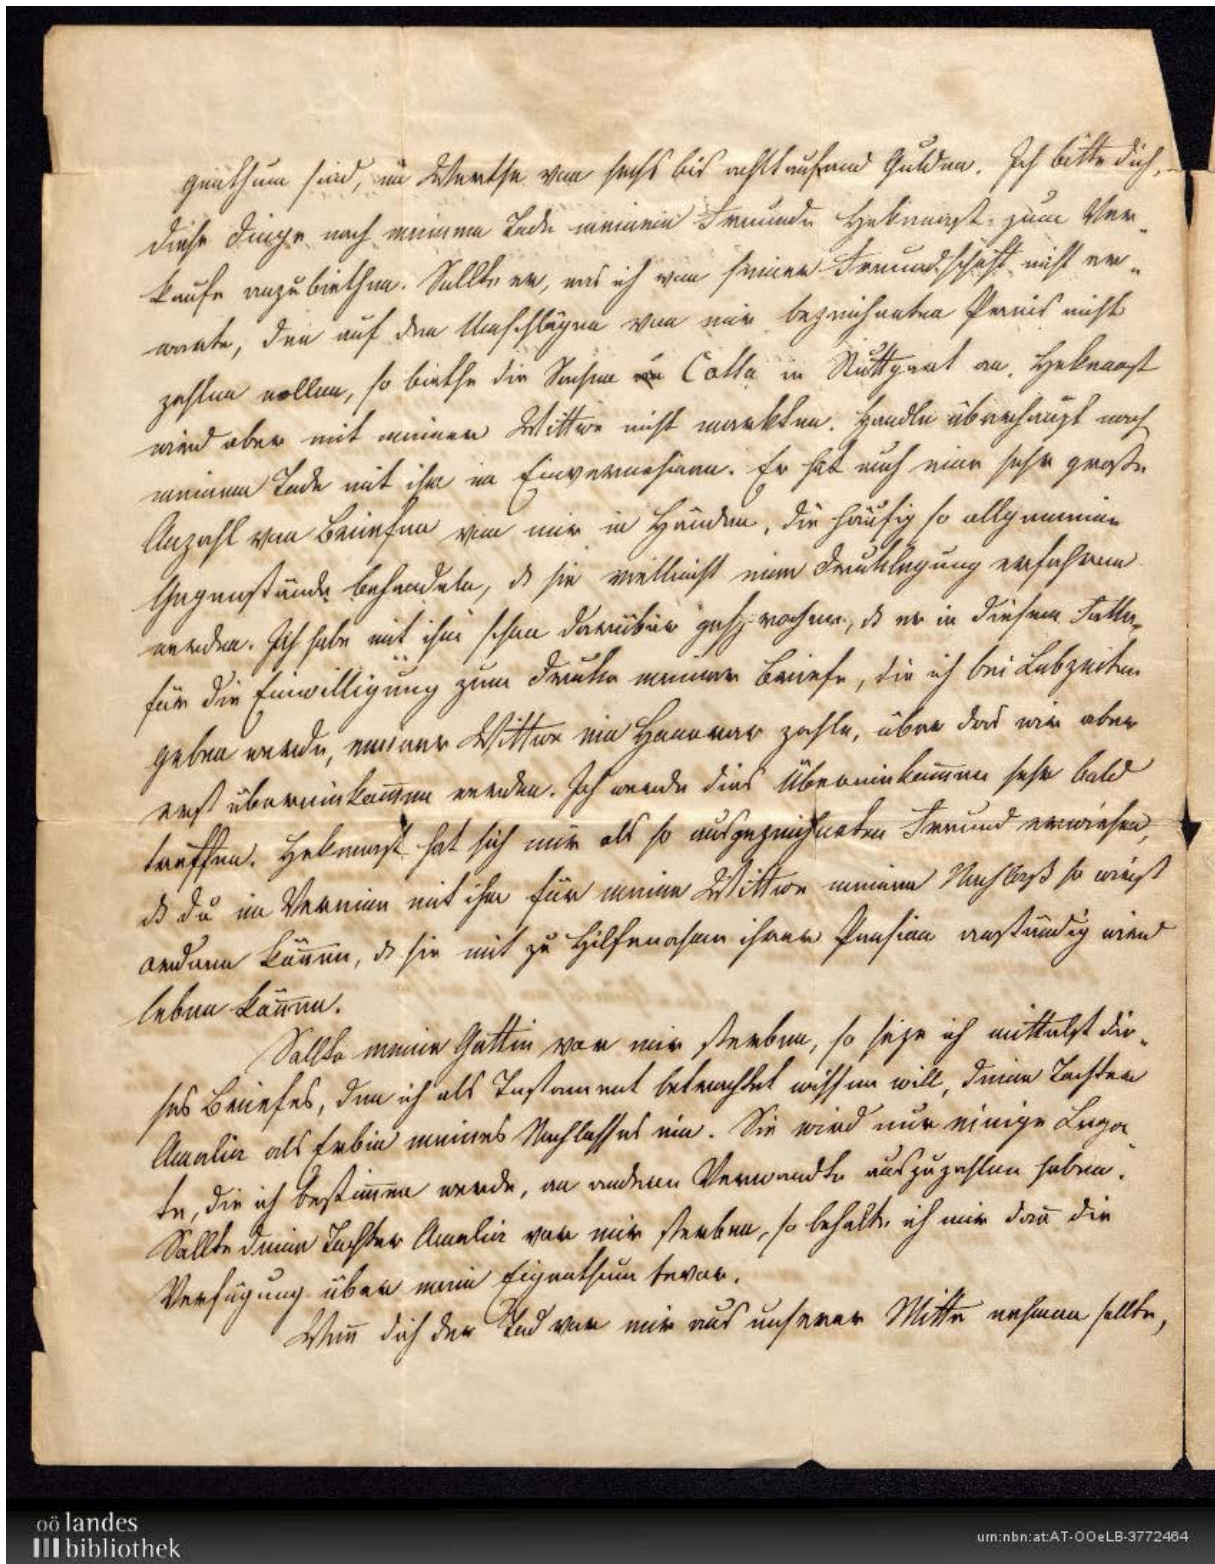 genthum sind, im Werthe von sechs bis achttausend Gulden. Ich bitte dich,
diese Dinge nach meinem Tode meinem Freunde Hekenast zum Ver„
kaufe anzubiethen. Sollte er, was ich von seiner Freundschaft nicht er„
warte, den auf den Umschlägen von mir bezeichneten Preis nicht
zahlen wollen, so biethe die Sachen Cotta in Stuttgart an. Hekenast
wird aber mit meiner Wittwe nicht markten. Handle überhaupt nach
meinem Tode mit ihm im Einvernehmen. Er hat auch eine sehr große
Anzahl von Briefen von mir in Händen, die häufig so allgemeine
Gegenstände behandeln, ds sie vielleicht eine Druklegung erfahren
werden. Ich habe mit ihm schon darüber gesprochen, ds er in diesem Falle
für die Einwilligung zum Druke meiner Briefe, die ich bei Lebzeiten
geben werde, meiner Wittwe ein Honorar zahle, über das wir aber
erst übereinkom̅en werden. Ich werde dies Übereinkom̅en sehr bald
treffen. Hekenast hat sich mir als so ausgezeichneten Freund erwiesen,
ds du im Vereine mit ihm für meine Wittwe meinen Nachlaß so wirst
ordnen kön̅en, ds sie mit zu Hilfenahme ihrer Pension anständig wird
leben kön̅en.
Sollte meine Gattin vor mir sterben, so seze ich mittelst die„
ses Briefes, den ich als Testament betrachtet wissen will, deine Tochter
Amalia als Erbin meines Nachlasses ein. Sie wird nur einige Lega„
te, die ich bestim̅en werde, an andere Verwandte auszuzahlen haben.
Sollte deine Tochter Amalia vor mir sterben, so behalte ich mir dan̅ die
Verfügung über mein Eigenthum bevor.
Wen̅ dich der Tod vor mir aus unserer Mitte nehmen sollte,
oö landes
bibliothek
urn:nbn:at:AT-OOeLB-3772464